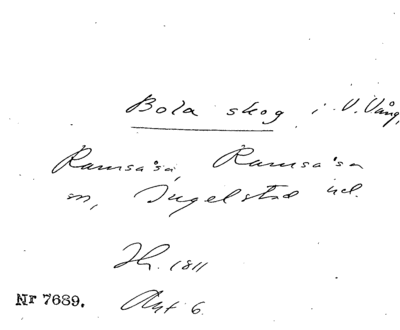 Bola skog i V. Vång,
Ramsåsa, Ramsåsa
sn, Ingelstad hd.
Hr. 1811
Akt 6.
Nr 7689.